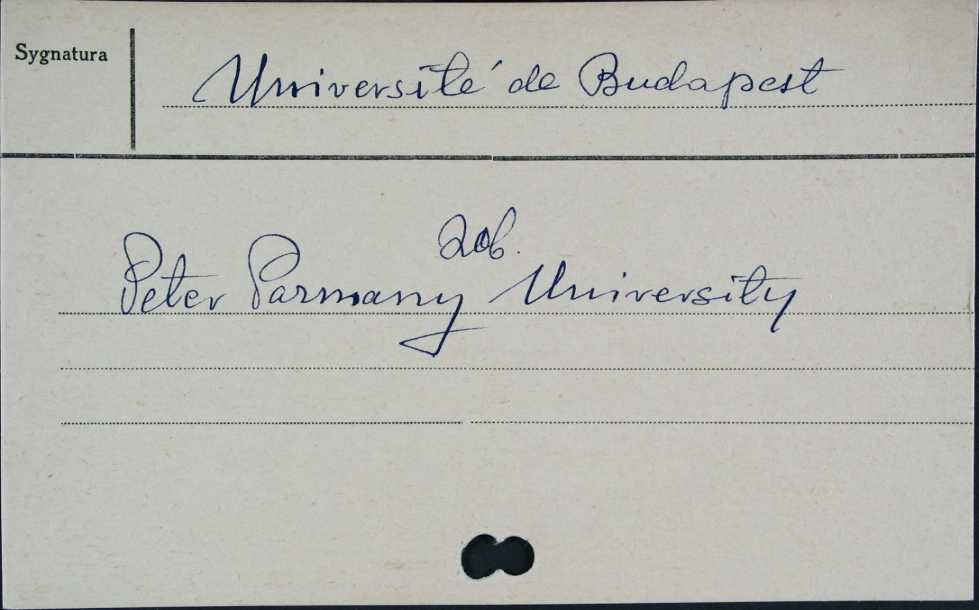 Sygnatura
Université de Budapest
zob.
Peter Parmany University